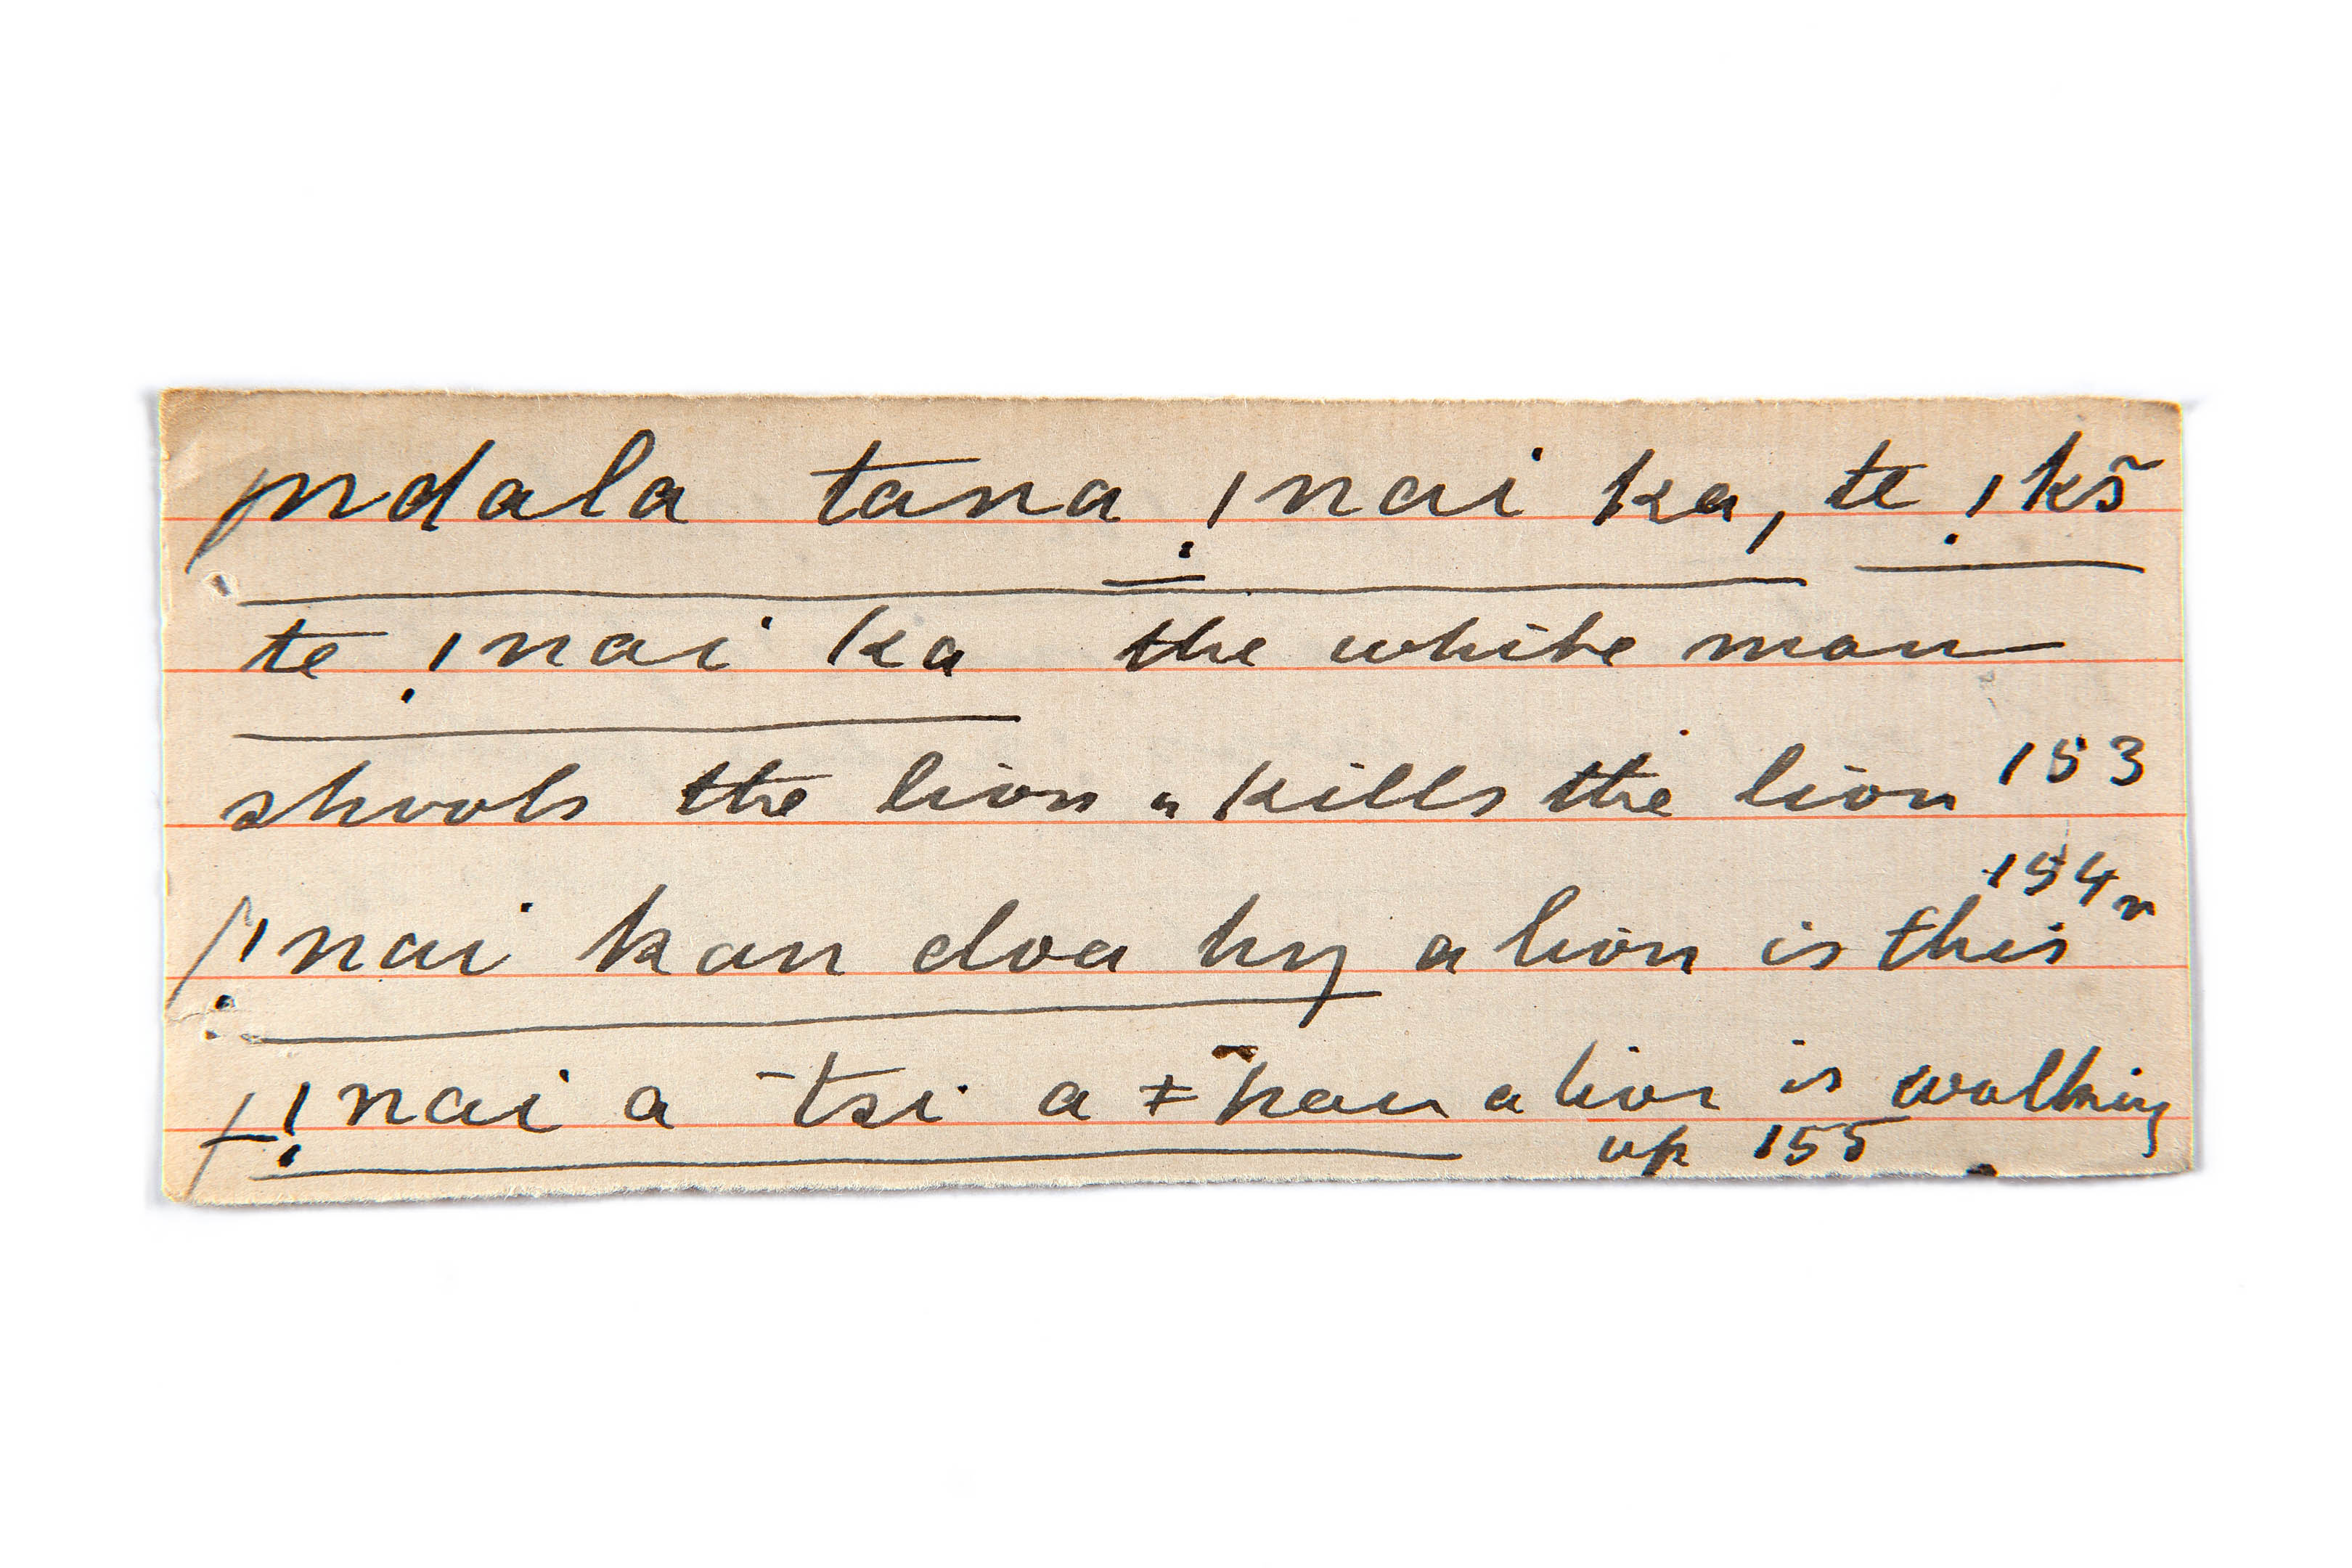 ndala tana !nai ka, te !kõ
te !nai ka the white man
shoots the lion " kills the lion 153
154 n
!nai kan doa hỹ a lion is this
!nai a tsi a ǂhan a lion is walking
up 155